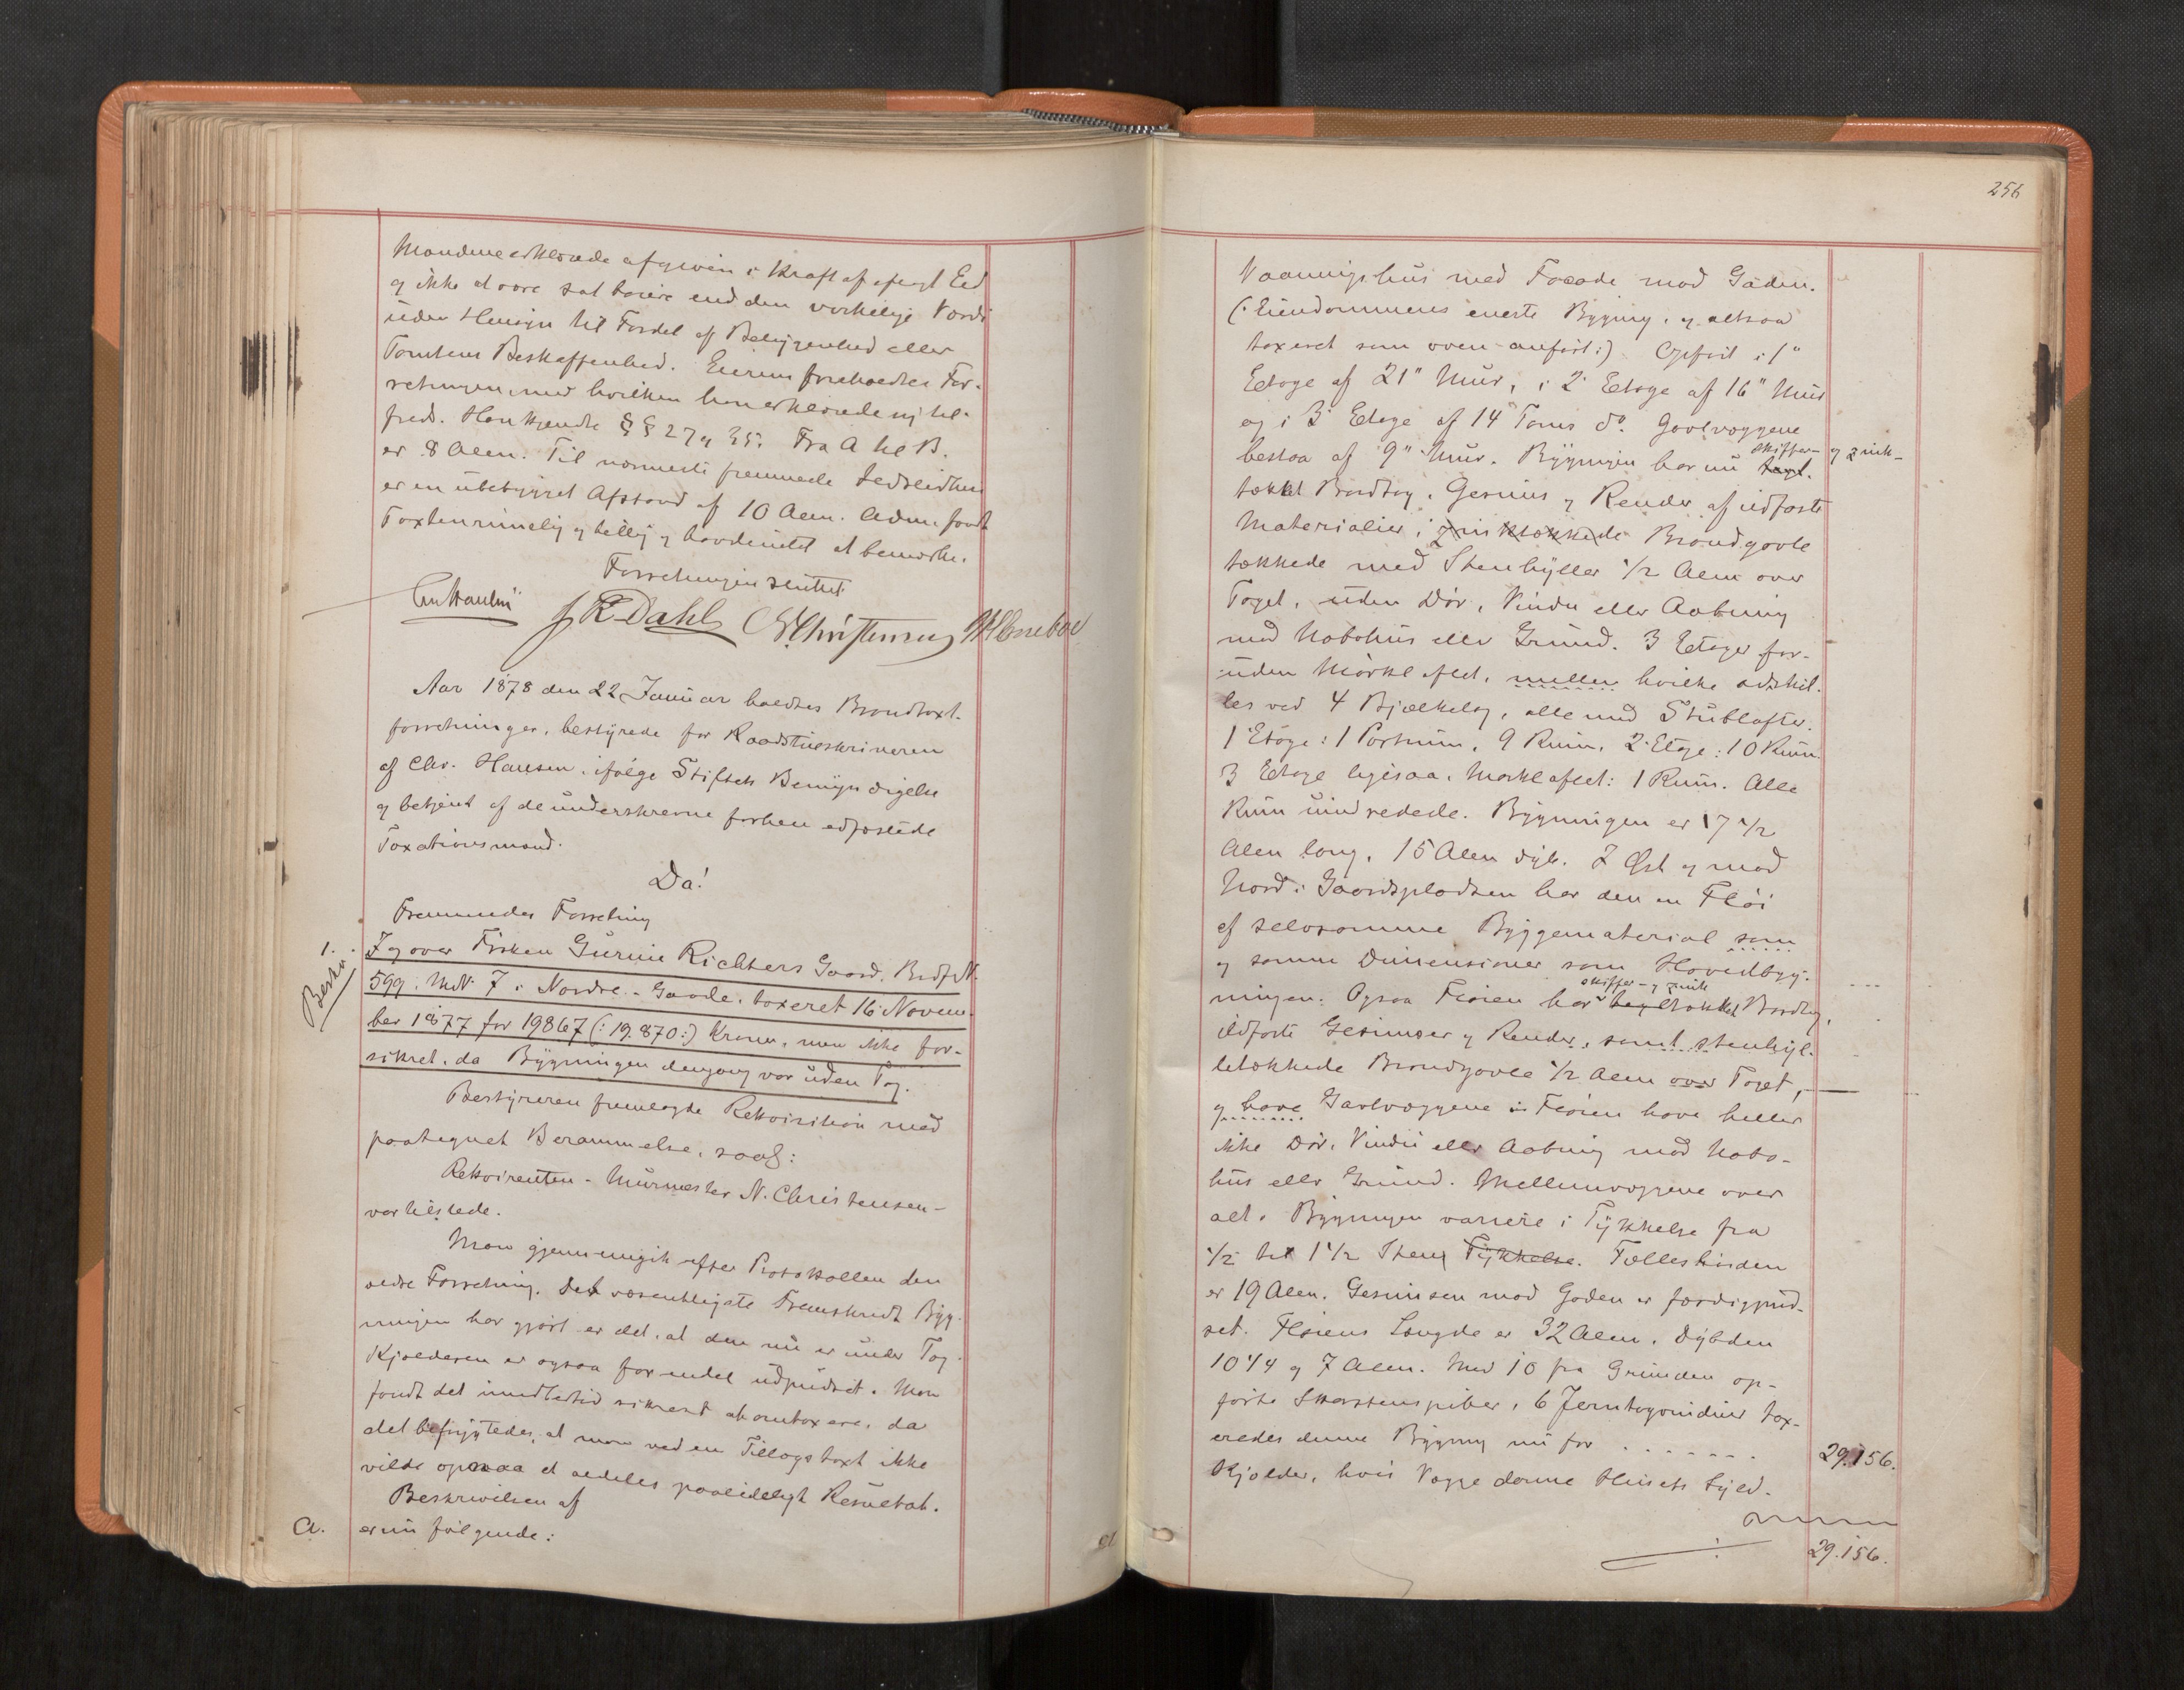 Mændene erklærede afgiven i Kraft af aflagt Eed
og ikke at være sat høiere end den virkelige Værdi
uden Hensyn til Fordel af Beliggenhed eller
Tomtens Beskaffenhed. Eieren foreholdtes For-
retningen, med hvilken han erklærede sig til-
freds. Han kjendte §§ 27 og 35. Fra A til B.
er 8 Alen. Til nærmeste fremmede
er en ubebygget Afstand af 10 Alen. fandt
Taxten rimelig og billig og havde intet at bemærke.
Forretningen sluttet
J R Dahl N. Christensen
Aar 1878 den 22 Januar holdtes Brandtaxt-
forretninger, bestyrede for Raadstueskriveren
af Chr. Hansen ifølge Stiftets Bemyndigelse
og betjent af de underskrevne forhen edfæstede
Taxationsmænd.
Da!
Fremmedes Forretning
1.
I og over Frøken Gurine Richters Gaard. Brdf. N.
Beskr.
599. M.N. 7 i Nordre-Gaade, taxeret 16 Novem-
ber 1877 for 19867 (: 19.870 :) Kroner, men ikke for-
sikret, da Bygningen dengang var uden Tag.
Bestyreren fremlagte Rekvisition med
paategnet Berammelse, saal:
Rekvirenten - Murmester N. Christensen -
var tilstede.
Man gjennemgik efter Protokollen den
ældre Forretning. Det væsentligste Fremskridt Byg-
ningen har gjort er det, at den nu er under Tag.
Kjælderen er ogsaa for endel udpudset. Man
fandt det imidlertid sikrest at omtaxere, da
det befrygtedes, at man ved en Tillægstaxt ikke
vilde opnaa et aldeles paalideligt Resultat.
Beskrivelsen af
A. er nu følgende:
256
Vaaningshus med Facade mod Gaden.
(: Eiendommens eneste Bygning, og altsaa
taxeret som oven anført :) Opført i 1"
Etage af 21" Mur, i 2 Etage af 16" Mur
og i 3 Etage af 14 Toms do. Gavlvæggene
skiffer- og zink-
bestaa af 9" Mur. Bygningen har nu tegl-
tækket Bordtag, Gesims og Render af ildfaste
Materialier, i zinktækkede Brandgavle
tækkede med Stenhyller 1/2 Alen over
Taget, uden Dør, Vindu eller Aabning
mod Nabohus eller Grund. 3 Etager for-
uden Mørkloftet, mellem hvilke adskil-
les ved 4 Bjælkelag, alle med Stubloft.
1 Etage: 1 Portrum, 9 Rum, 2 Etage: 10 Rum
3 Etage ligesaa. Mørkloftet: 1 Rum. Alle
Rum uindredede. Bygningen er 17 1/2
Alen lang, 15 Alen dyb. I Øst og mod
Nord i Gaardspladsen har den en Fløi
af selvsamme Byggematerial som
og samme Dimensioner som Hovedbyg-
skiffer- og zink
ningen. Ogsaa Fløien har tegltækket Bordtag,
ildfaste Gesimser og Render, samt stenhyl-
letækkede Brandgavle 1/2 Alen over Taget,
og have Gavlvæggene i Fløien have heller
ikke Dør, Vindu eller Aabning mod Nabo-
hus eller Grund. Mellemvæggene over
alt i Bygningen variere i Tykkelse fra
1/2 til 1 1/2 Sten Tykkelse. Fælleshøiden
er 19 Alen. Gesimsen mod Gaden er færdigpud-
set. Fløiens Længde er 32 Alen, Dybden
10 1/4 og 7 Alen. Med 10 fra Grunden op-
førte Skorstenspiber, 6 Jerntagvinduer tax-
eredes denne Bygning nu for . . . . . . 29.156.
Kjelder, hvis Vægge danne Husets Fjeld-
29.156.